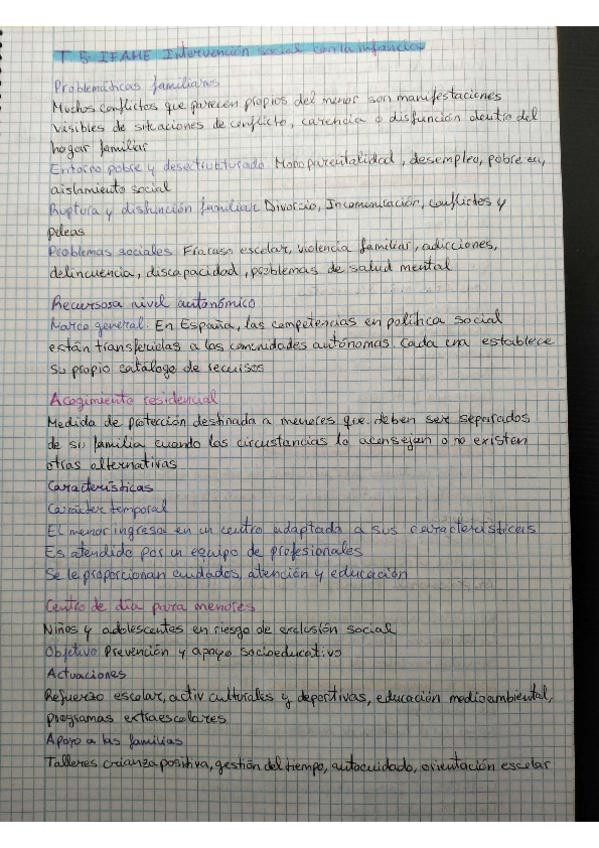 T. 5. IFAME Intervención social con la infancia
Problemáticas familiares
Muchos conflictos que parecen propios del menor son manifestaciones
visibles de situaciones de conflicto, carencia o disfunción dentro del
hogar familiar
Entorno pobre y desectrutturado. Monoparentalidad, desempleo, pobreza,
aislamiento social
Ruptura y disfunción familiar Divorcio, Incomunicación, conflictos y
peleas
Problemas sociales Fracaso escolar, violencia familiar, adicciones,
delincuencia, discapacidad, problemas de salud mental
Recursosa nivel autonómico
Marco general. En España, las competencias en política social
están transferidas a las comunidades autónomas. Cada una establece
su propio catálogo de recursos
Acogimiento residencial
Medida de protección destinada a menores que deben ser separados
de su familia cuando las circustancias lo aconsejan o no existen
otras alternativas
Características
Carácter temporal
El menor ingresa en un centro adaptada a sus características
Es atendido por un equipo de profesionales
Se le proporcionan cuidados, atención y educación
Centro de día para menores
Niños y adolescentes en riesgo de exclusión social
Objetivo Prevención y apoyo socioeducativo
Actuaciones
Refuerzo escolar, activ culturales y deportivas, educación medioambiental,
programas extraescolares
Apoyo a las familias
Talleres crianza positiva, gestión del tiempo, autocuidado, orientación escolar